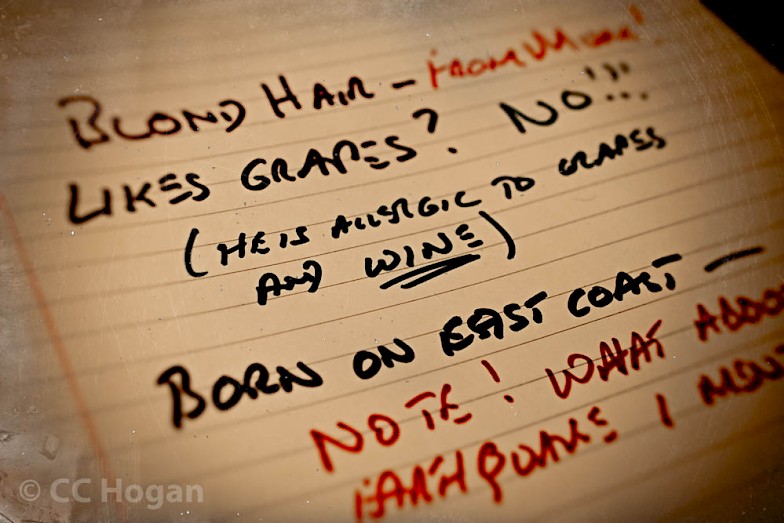 BLOND HAIR – FROM MUM!
LIKES GRAPES? NO!!!
(HE IS ALLERGIC TO GRAPES
AND WINE)
BORN ON EAST COAST –
NOTE! WHAT
EARTHQUAKE I
© CC Hogan